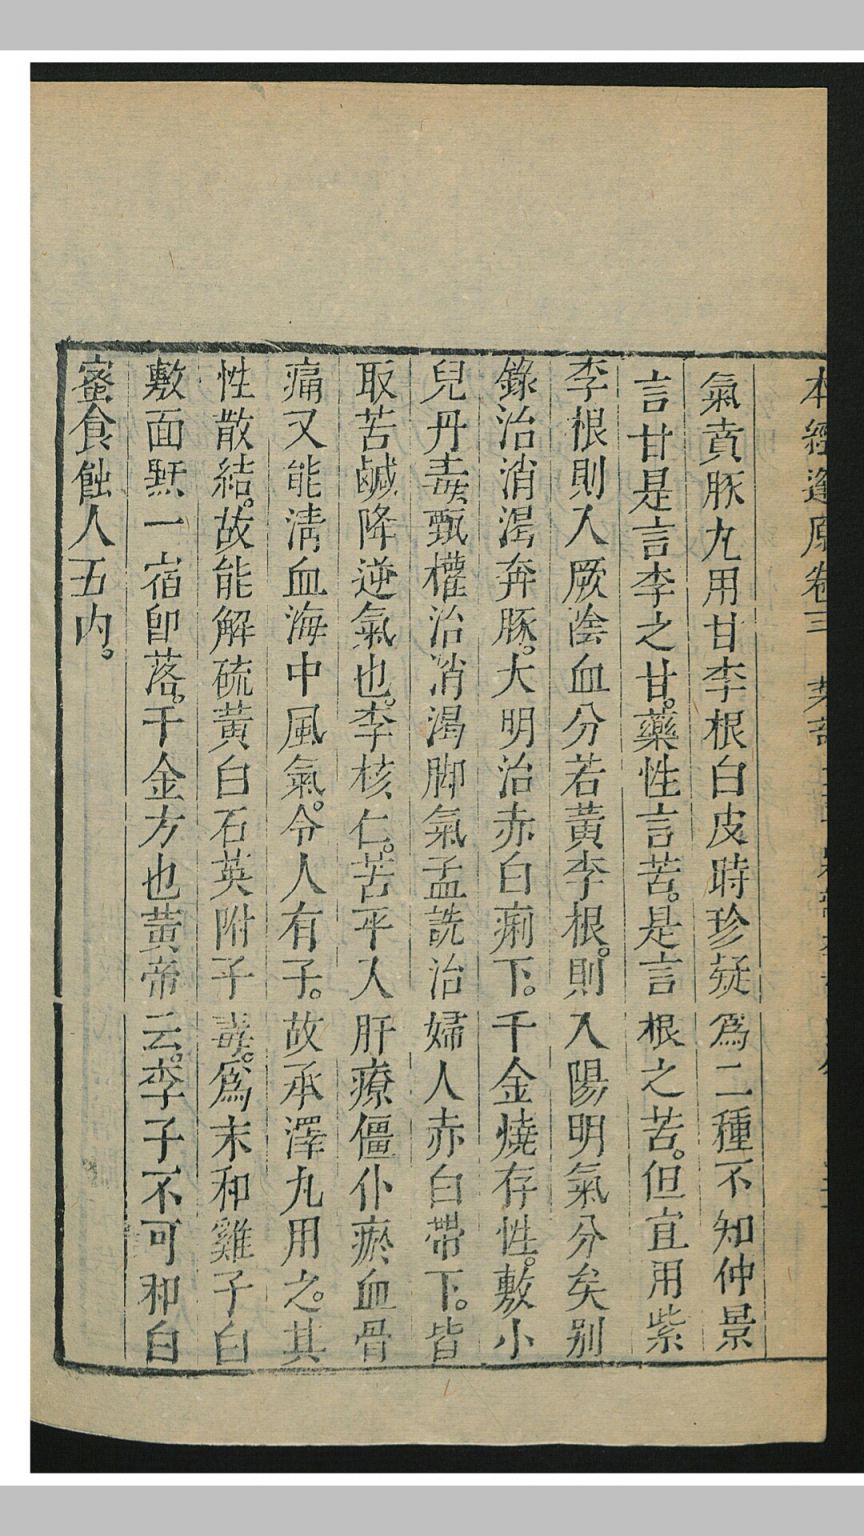 本經逢原卷三
氣賁豚丸用甘李根白皮時珍疑爲二種不知仲景
言甘是言李之甘。藥性言苦。是言根之苦。但宜用紫
李根則入厥陰血分若黃李根。則入陽明氣分矣別
錄治消渴奔豚。大明治赤白痢下。千金燒存性。敷小
兒丹毒。甄權治消渴脚氣孟詵治婦人赤白帶下。皆
取苦鹹降逆氣也。李核仁。苦平入肝療僵仆瘀血骨
痛又能淸血海中風氣。令人有子。故承澤丸用之。其
性散結。故能解硫黃白石英附子毒。爲末和雞子白
敷面䵟一宿卽落。千金方也黃帝云。李子不可和白
蜜食蝕人五內。